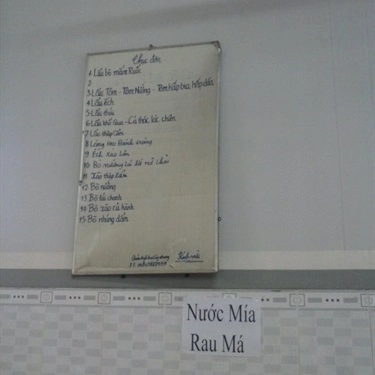 Thực đơn
1 Lẩu bò mắm Ruốc
2
3 Lẩu Tôm - Tôm Nướng - Tôm hấp bia, hấp dừa
4 Lẩu Ếch
5 Lẩu thái
6 Lẩu Khổ Qua - Cá thác lác chiên
7 Lẩu thập Cẩm
8 Lòng heo khìa
9 Ếch Xào Lăn
10 Bò nướng lá lốt mỡ chài
11 Xào thập Cẩm
12 Bò nướng
13 Bò tái chanh
14 Bò xào củ hành
15 Bò nhúng dấm
Kính mời
Nước Mía
Rau Má